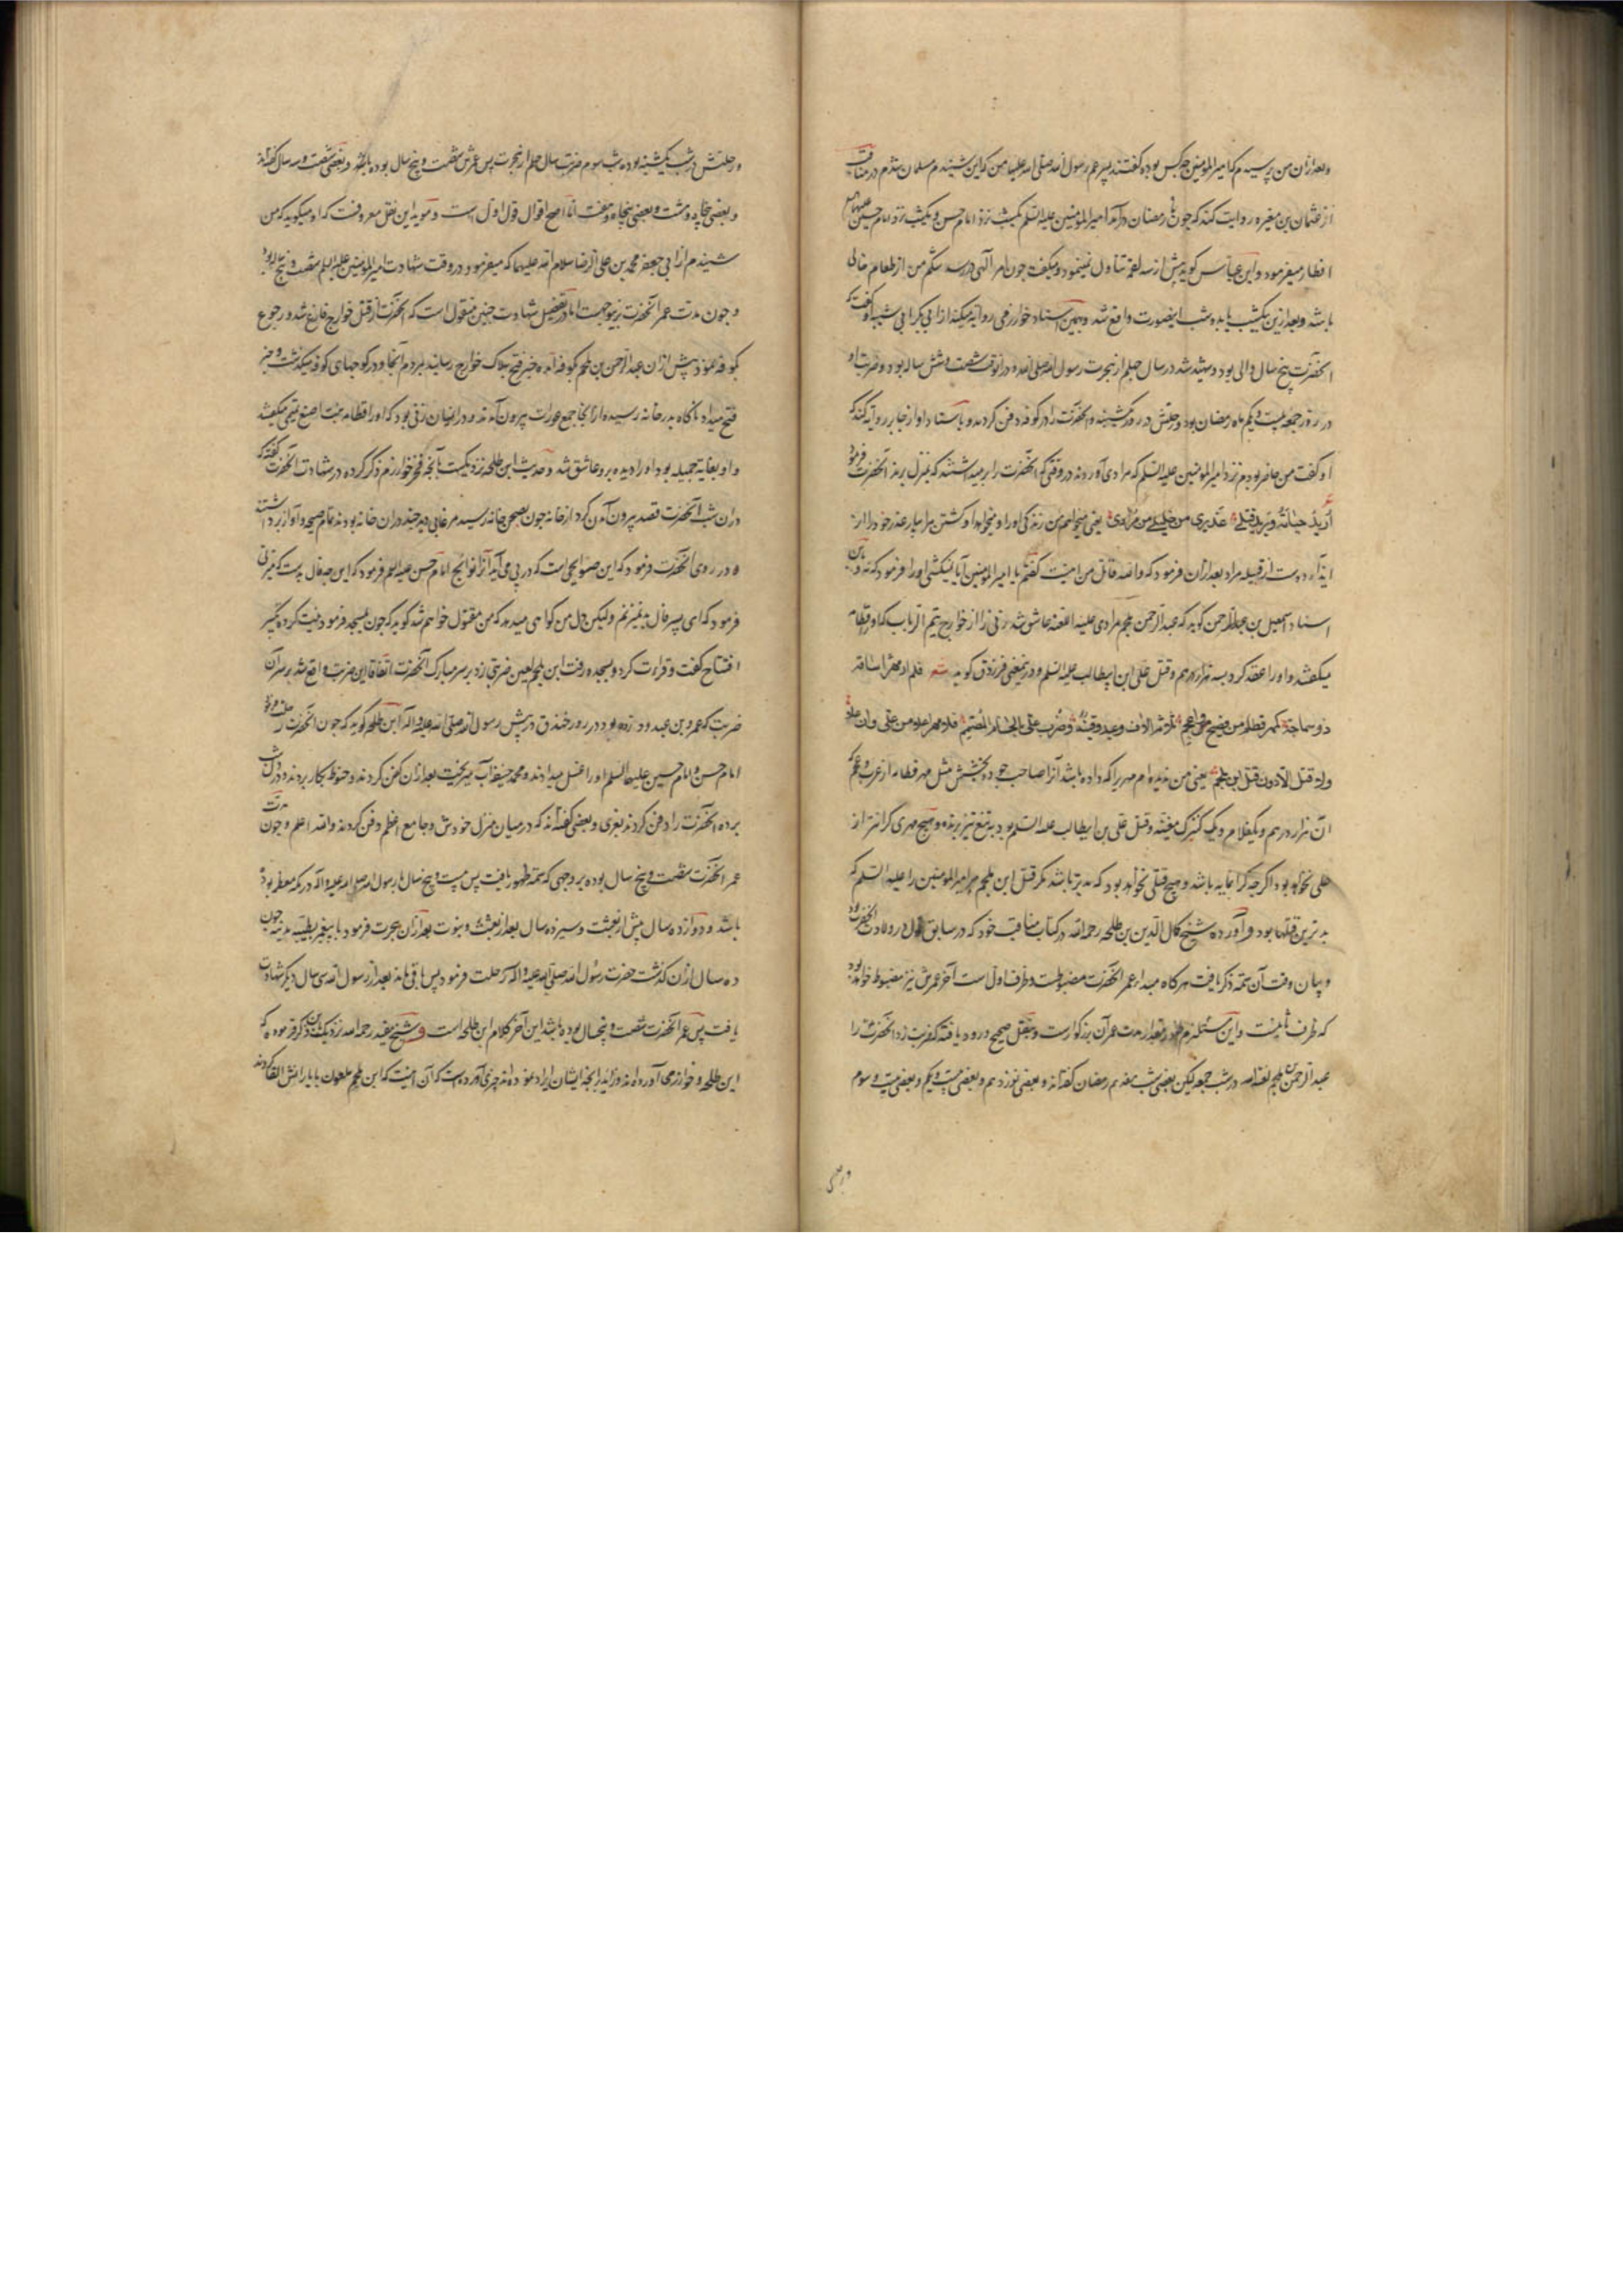 وبعد ازان من پرسیدم که امیر المؤمنین چه کس بود گفتند پسر عم رسول الله صلی الله علیهما من که این شنیدم مسلمان شدم در مناقب
از عثمان بن مغیره روایت کند که چون رمضان درآمد امیر المؤمنین علیه السلم یکشب نزد امام حسن و یکشب نزد امام حسین علیهما
افطار میفرمود و ابن عباس کوید پیش از سه لقمه تناول نمینمود و میکفت چون امر الهی در رسد شکم من از طعام خالی
باشد وبعد ازین یکشب یا دو شب اینصورت واقع شد و بهمین اسناد خوارزمی روایة میکند از ابی بکر ابی شیبه او گفت که
آنحضرت پنج سال والی بود و شهید شد در سال چهلم از هجرت رسول الله صلی الله و در آنوقت شصت و شش ساله بود و ضربت او
در روز جمعه بیست و یکم ماه رمضان بود و رحلتش در روز یکشنبه و آنحضرت را در کوفه دفن کردند و باسناد او از جابر روایة کند که
او کفت من حاضر بودم نزد امیر المؤمنین علیه السلم که مرادی آوردند در وقتی که آنحضرت را برمیداشتند که بمنزل برند آنحضرت فرمود
اُرید حیاته ویرید قتلی عذیری من خلیلی من مرادی یعنی میخواهم من زندکی او را و میخواهد او کشتن مرا بیار عذر خود را از
ایذاء دوست از قبیله مراد بعد ازان فرمود که والله قاتل من اینست گفتم یا امیر المؤمنین آیا نمیکشی او را فرمود که نه و باین
اسناد اسمعیل بن عبد الرحمن کوید که عبد الرحمن ملجم مرادی علیه اللعنه عاشق شد زنی را از خوارج تیم الرباب که او را قطام
میکفتند و او را عقد کرد بسه هزار درهم و قتل علی ابن ابیطالب علیه السلم و درینمعنی فرزدق کوید شعر فلم ار مهرا ساقه
ذو سماحة کمهر قطام من فصیح و اعجم ثلثة الاف و عبد وقینة وضرب علی بالحسام المصمم فلا مهر اغلا من علی وان علا
ولا قتل الا دون قتل ابن ملجم یعنی من ندیده ام مهریرا که داده باشد آنرا صاحب جود و بخشش مثل مهر قطام از عرب و عجم که
آن هزار درهم و یکغلام و یک کنیزک مغنیه و قتل علی بن ابیطالب علیه السلم بود به تیغ تیز برنده و هیچ مهری کرانتر از
علی نخواهد بود اکرچه کرانمایه باشد و هیچ قتلی نخواهد بود که بدتر باشد مکر قتل ابن ملجم مر امیر المؤمنین را علیه السلم که
بدترین قتلها بود و آورده شیخ کمال الدین بن طلحه رحمه الله در کتاب مناقب خود که در سابق اول در ولادت آنحضرت بود
و بیان وقت آن سمة ذکر یافت هرکاه مبداء عمر آنحضرت مضبوطست و طرف اول است آخر عمرش نیز مضبوط خواهد بود
که طرف ثانیست و این مستلزم ظهور مقدار مدت عمر آن بزرکوارست و بنقل صحیح درود یافته که ضربت زد آنحضرت را
عبد الرحمن ملجم لعنه الله در شب جمعه لیکن بعضی شب هفدهم رمضان کفته اند و بعضی نوزدهم و بعضی بیست و یکم و بعضی بیست و سوم
و رحلتش در شب یکشنبه بوده شب سوم ضربت سال چهلم از هجرت پس عمرش شصت و پنج سال بوده باشد و بعضی شصت و سه سال کفته اند
و بعضی پنجاه و هشت و بعضی پنجاه و هفت اما اصح اقوال قول اول است و مؤید این نقل معروفست که او میکوید که من
شنیدم از ابی جعفر محمد بن علی الرضا سلام الله علیهما که میفرمود در وقت شهادت امیر المؤمنین علیه السلم شصت و پنج ساله بود
و چون مدت عمر آنحضرت برینوجهست اما در تفصیل شهادت چنین منقول است که آنحضرت از قتل خوارج فارغ شد و رجوع
بکوفه نمود پیش ازان عبد الرحمن بن ملجم بکوفه آمده خبر فتح هلاک خوارج رسانید بمردم آنجا و در کوچهای کوفه میکذشت و خبر
فتح میداد ناکاه بدر خانه رسیده از آنجا جمع عورات بیرون آمدند و در میان زنی بود که او را قطامه بنت اصبغ تیمی میکفتند
و او بغایة جمیله بود او را دیده برو عاشق شد و حدیث ابن طلحه نزدیکست بآنچه فخر خوارزم ذکر کرده در شهادت آنحضرت گفته که
دران شب آنحضرت قصد بیرون آمدن کرد از خانه چون بصحن خانه رسید مرغابی چند دران خانه بودند تمام صیحه و آواز برداشتند
در روی آنحضرت فرمود که این صوایحی است که در پی می آید آنرا نوایح امام حسن علیه السلم فرمود که این چه فال بدست که میزنی
فرمود که ای پسر فال بد نمیزنم ولیکن دل من کواهی میدهد که من مقتول خواهم شد کوید که چون بمسجد فرمود نیت کرده تکبیر
افتتاح کفت و قراءت کرد و بسجده رفت ابن ملجم لعین ضربتی زد بر سر مبارک آنحضرت اتفاقا این ضربت واقع شد بر سر آن
ضربت که عمرو بن عبد ود زده بود در روز خندق در پیش رسول الله صلی الله علیه و آله ابن طلحه کوید که چون آنحضرت رحلت فرمود
امام حسن و امام حسین علیهما السلم او را غسل میدادند و محمد حنیفه آب میریخت بعد ازان کفن کردند و حنوط بکار بردند و دران شب
برده آنحضرت را دفن کردند بغری و بعضی کفته اند که در میان منزل خودش و جامع اعظم دفن کردند والله اعلم و چون مدت
عمر آنحضرت شصت و پنج سال بوده بر وجهی که سمة ظهور یافت پس بیست و پنج سال با رسول الله صلی الله علیه و آله در مکه معظمه بوده
باشد و دوازده سال پیش از بعثت و سیزده سال بعد از بعثت و نبوت بعد ازان هجرت فرمود با پیغمبر بطیبه مدینه چون
ده سال ازان کذشت حضرت رسول الله صلی الله علیه و آله رحلت فرمود پس باقی ماند بعد از رسول الله سی سال دیکر شهادت
یافت پس عمر آنحضرت شصت و پنجسال بوده باشد این آخر کلام ابن طلحه است و شیخ مفید رحمه الله نزدیک بدین ذکر فرموده که
ابن طلحه و خوارزمی آورده اند و زاید بر آنچه ایشان ایراد نموده اند چیزی آورده است که آن اینست که ابن ملجم ملعون با یارانش القا کردند
ورحلتش